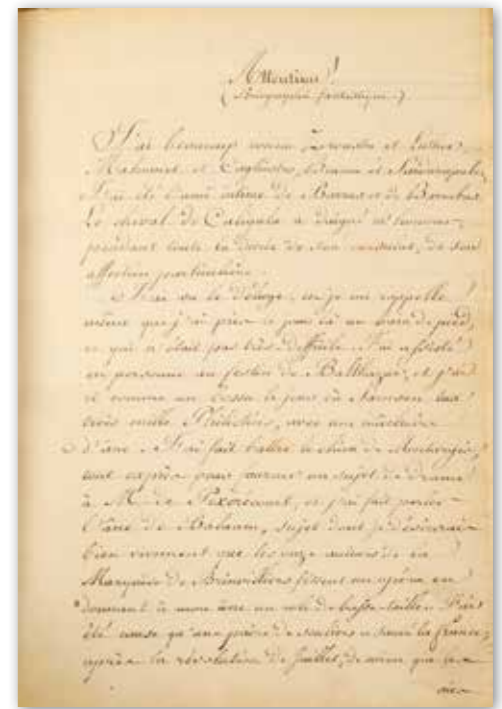 Menteur !
(Biographie fantastique.)
J'ai beaucoup connu Zoroastre et Luther,
Mahomet et Cagliostro, Brama et Sardanapale.
J'ai été l'ami intime de Barrès et de Barrabas.
Le cheval de Caligula a daigné m'honorer,
pendant toute la durée de son consulat, de son
affection particulière.
J'ai vu le déluge, et je me rappelle
même que j'ai pris ce jour là un bain de pied,
ce qui n'était pas très difficile. J'ai assisté
en personne au festin de Balthazar, et j'ai
ri comme un bossu le jour où Samson tua
trois mille Philistins, avec une mâchoire
d'âne. J'ai fait battre le chien de Montargis,
tout exprès pour fournir un sujet de drame
à M. de Pixérécourt, et j'ai fait parler
l'âne de Balaam, sujet dont je désirerais
bien vivement que les onze auteurs de la
Marquise de Brinvilliers fissent un opéra en
donnant à mon âne un rôle de basse-taille. J'ai
été cause qu'une paire de souliers a sauvé la France,
après la révolution de Juillet, de même que les
oies